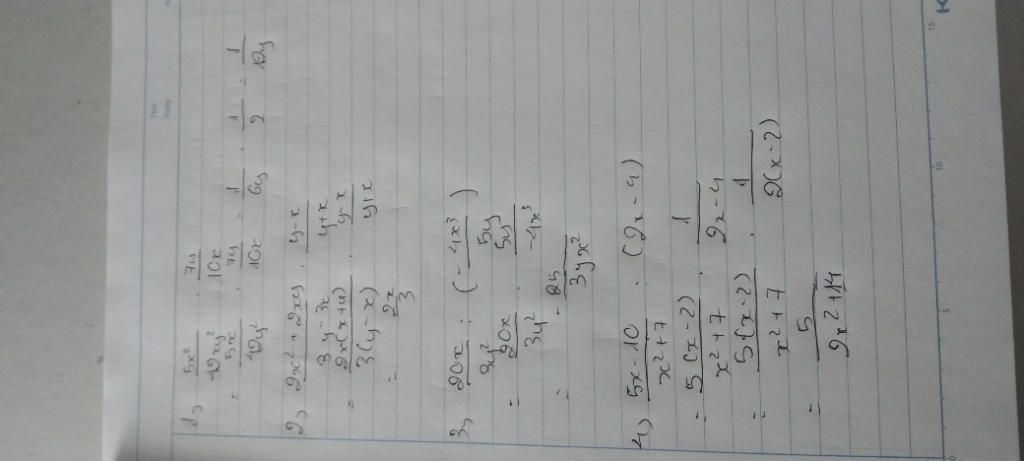 1) 5x²/12xy² · 7y/10x
= 5x/12y² · 7y/10x = 1/6y · 1/2 = 1/12y
2) 2x² + 2xy / 3y - 3x · y - x / y + x
= 2x(x+y) / 3(y-x) · y-x / y+x
= 2x/3
3) 20x/3y² : (- 4x³/5y)
= 20x/3y² · 5y/-4x³
= - 25/3yx²
4) 5x - 10 / x² + 7 : (2x - 4)
= 5(x-2) / x² + 7 · 1 / 2x - 4
= 5.(x-2) / x² + 7 · 1 / 2(x-2)
= 5 / 2x² + 14